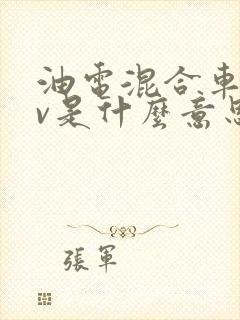 油電混合車
v是什麼意思
張軍